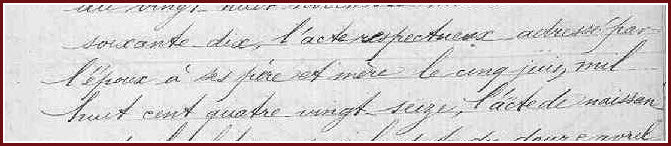 au vingt huit
soixante dix, l'acte respectueux adressé par
l'époux à ses père et mère le cinq juin, mil
huit cent quatre vingt seize, l'acte de naissan
douze avril